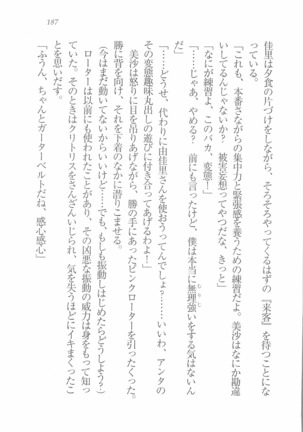 187
佳里は夕食の片づけをしながら、そろそろやってくるはずの『来客』を待つことにな
「これも、本番さながらの集中力と緊張感を養うための練習だよ。美沙はなにか勘違
いしてるんじゃないか？　被害妄想ってやつだな、きっと」
「なにが練習よ、このバカ、変態！」
「……じゃあ、やめる？　前にも言ったけど、僕は本当に無理強いをする気はないん
だ」
「……どうせ、代わりに由佳里さんを使おうってんでしょ？……いいわ、アンタの
その変態趣味丸出しの遊びに付き合ってあげるわよ！」
　美沙は怒りに目を吊りあげながら、勝の手にあったピンクローターを引ったくった。
勝に背を向け、それを下着のなかに潜りこませる。
（今はまだ動いてないからいいけど……でも、もしも振動しはじめたらどうしよう？）
　ローターは以前にも使われたことがあり、その凶悪な振動の威力は身をもって知っ
ていた。そのときはクリトリスをさんざんいじられ、気を失うほどにイキまくったこ
とを思いだす。
「ふうん、ちゃんとガーターベルトだね。感心感心」